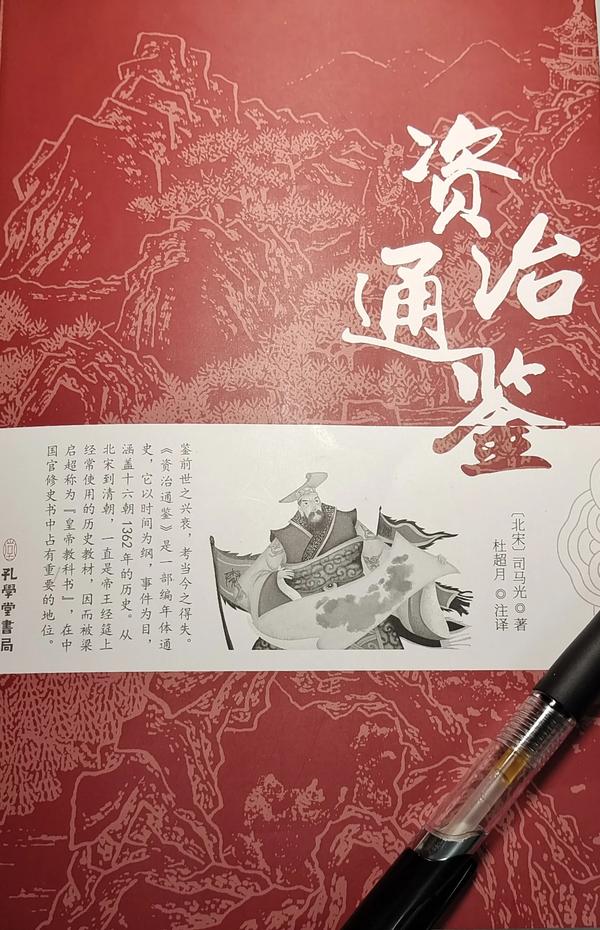 资治
通鉴
〔北宋〕司马光◎著
杜超月◎注译
鉴前世之兴衰，考当今之得失。
《资治通鉴》是一部编年体通
史，它以时间为纲，事件为目，
涵盖十六朝1362年的历史。从
北宋到清朝，一直是帝王经筵上
经常使用的历史教材，因而被梁
启超称为『皇帝教科书』，在中
国官修史书中占有重要的地位。
孔學堂書局